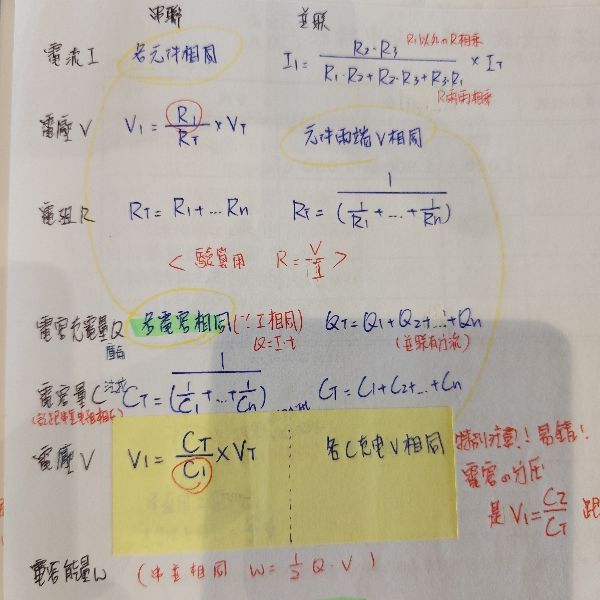 串聯 並聯
電流 I 各元件相同 I₁ = (R₂·R₃)/(R₁·R₂+R₂·R₃+R₃·R₁) × I_T
R₁以外的R相乘
R兩兩相乘
電壓 V V₁ = R₁/R_T × V_T 元件兩端V相同
電阻 R R_T = R₁+...Rn R_T = 1/(1/R₁+...+1/Rn)
< 驗算用 R = V/I >
電容充電量Q 各電容相同 (∵ I相同) Q_T = Q₁+Q₂+...+Qn
Q=I·t (並聯有分流)
電容量 C C_T = 1/(1/C₁+...+1/Cn) C_T = C₁+C₂+...+Cn
電壓 V V₁ = C_T/C₁ × V_T 各C充電V相同
特別注意! 易錯!
電容の分壓
是 V₁ = C₂/C_T
電容能量W (串並相同 W = 1/2 Q·V)